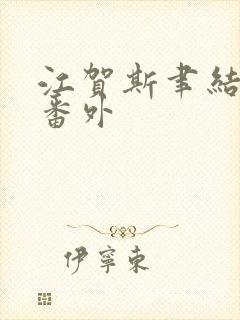 江賀斯聿結
番外
伊寧東